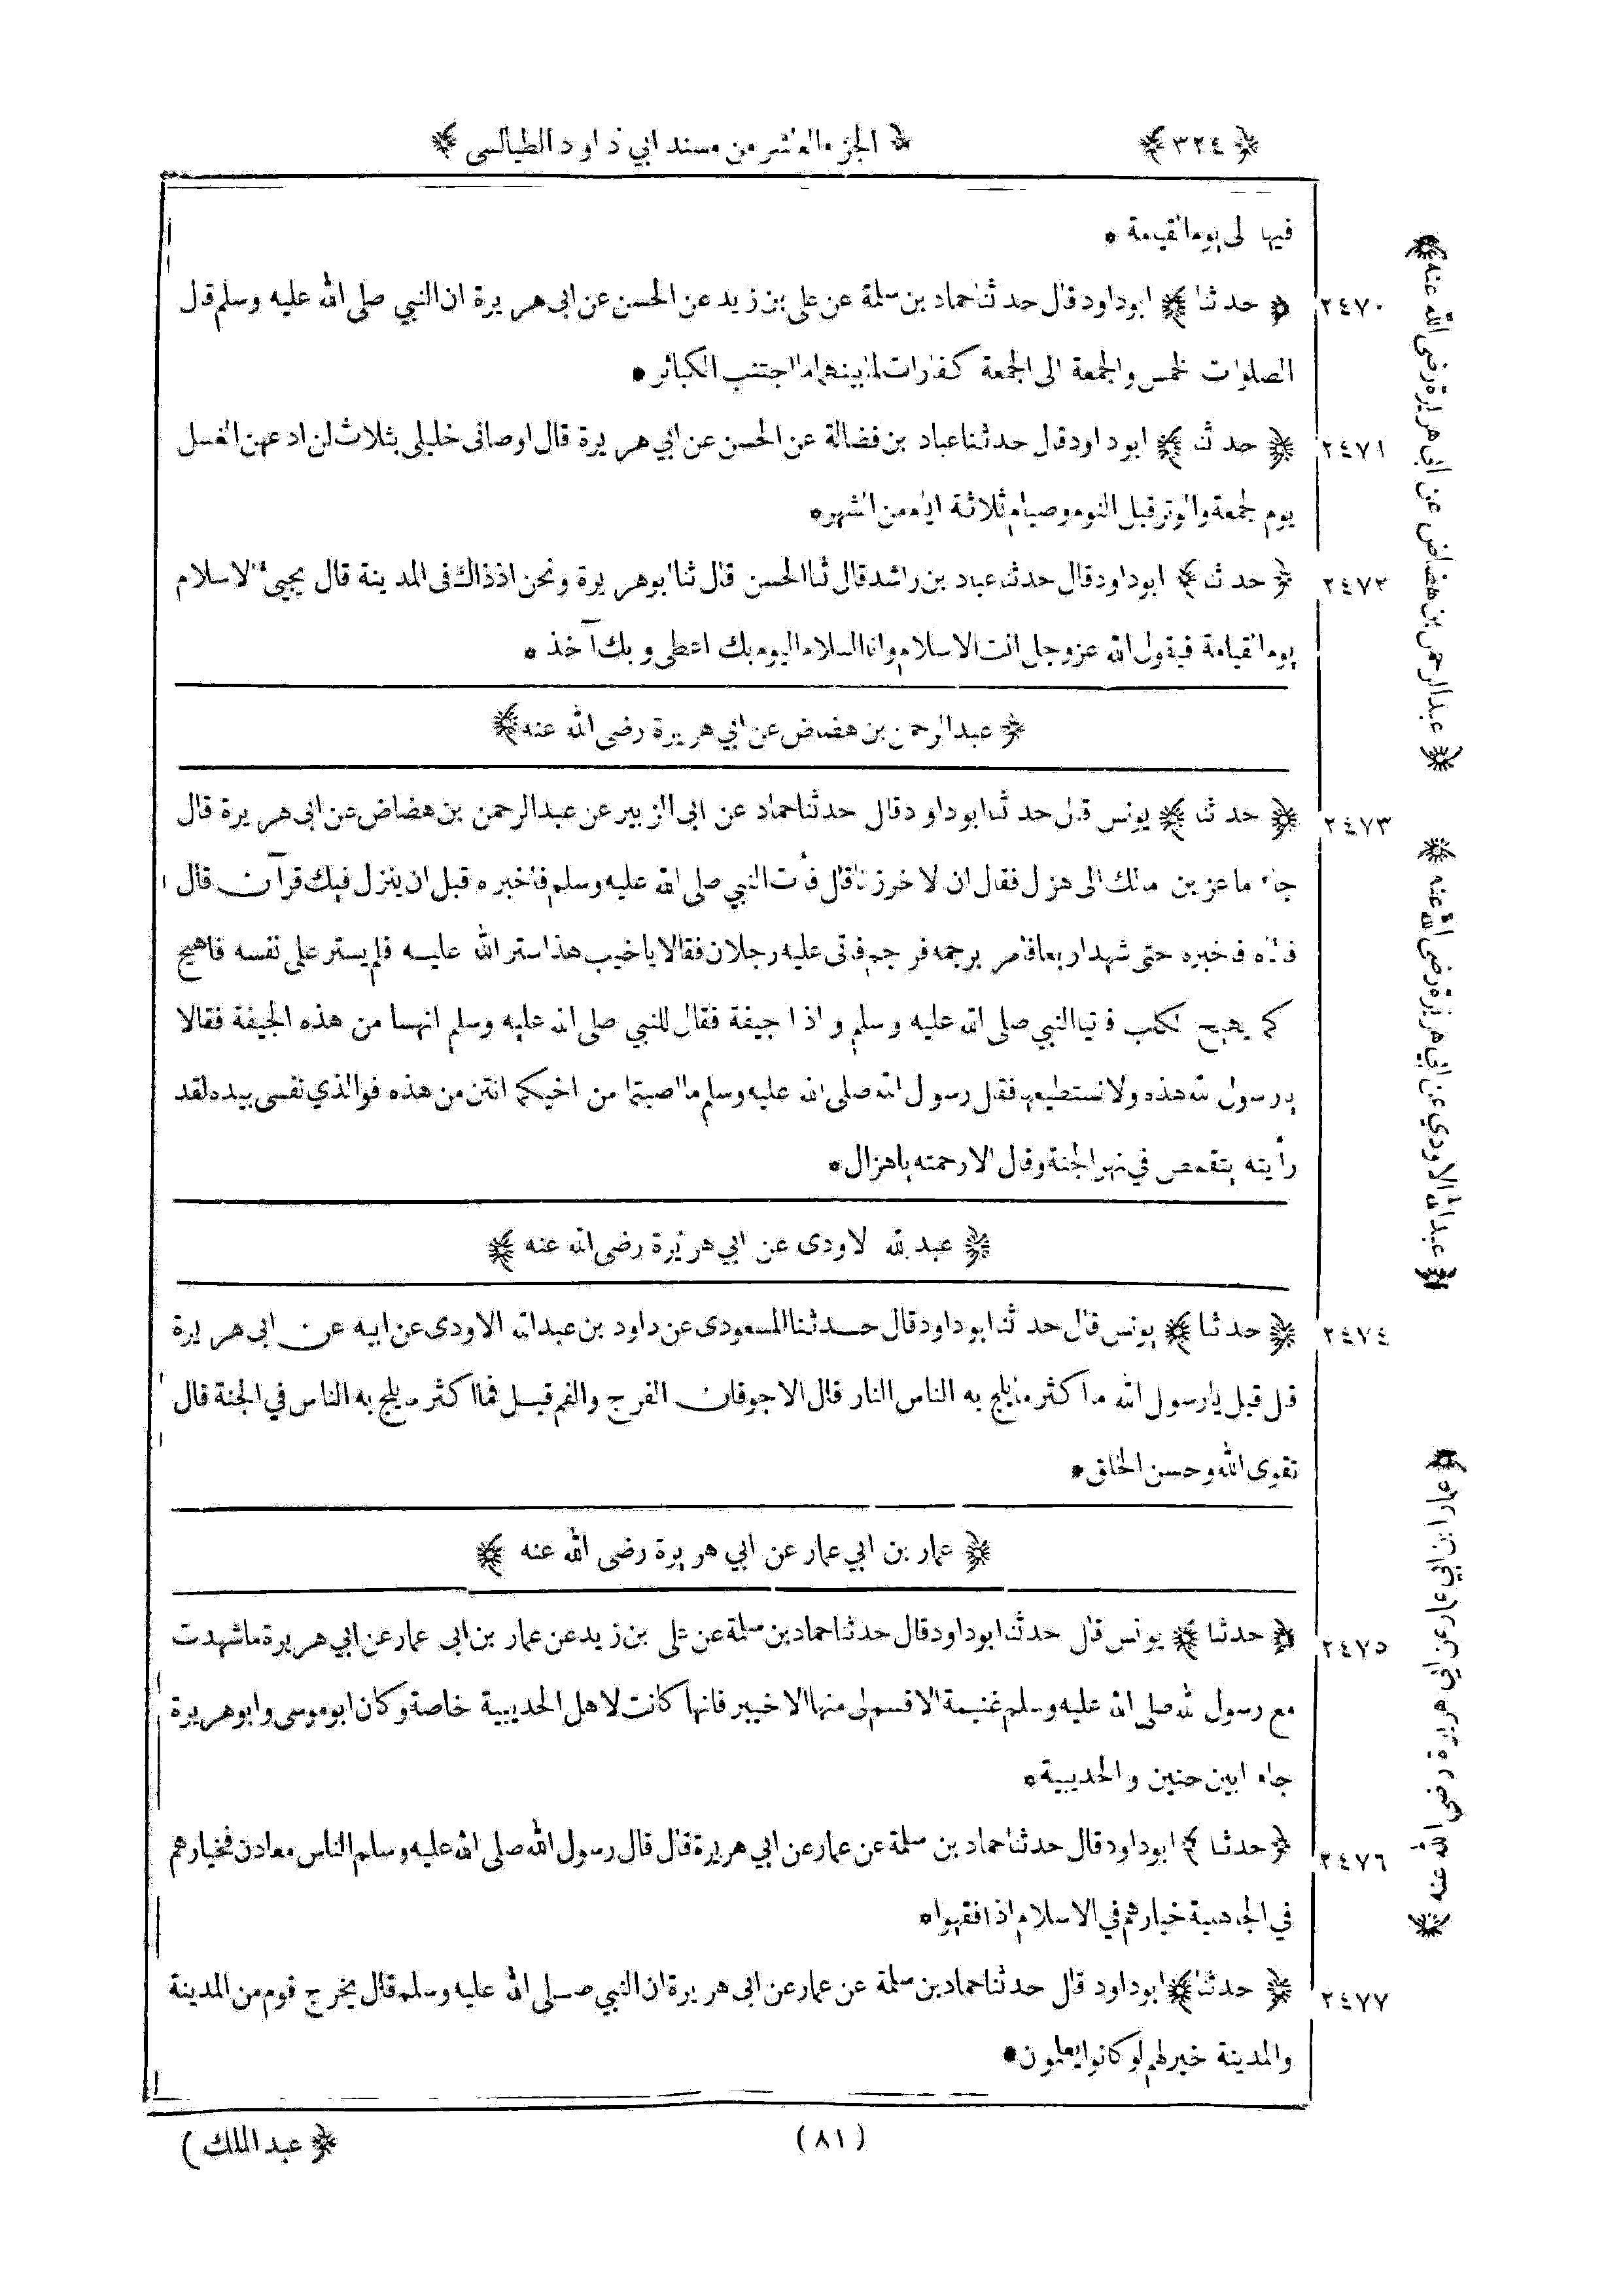 ﴿ ٣٢٤ ﴾ ﴿ الجزء العاشر من مسند ابي داود الطيالسى ﴾
فيها الى يوم القيمة *
٢٤٧٠ ﴿ حدثنا ﴾ ابو داود قال حدثنا حماد بن سلمة عن على بن زيد عن الحسن عن ابى هريرة ان النبي صلى الله عليه وسلم قال
الصلوات الخمس والجمعة الى الجمعة كفارات لما بينهما ما اجتنب الكبائر *
٢٤٧١ ﴿ حدثنا ﴾ ابو داود قال حدثنا عباد بن فضالة عن الحسن عن ابي هريرة قال اوصانى خليلى بثلاث لن ادعهن الغسل
يوم الجمعة والوتر قبل النوم وصيام ثلاثة ايام من الشهر *
٢٤٧٢ ﴿ حدثنا ﴾ ابو داود قال حدثنا عباد بن راشد قال ثنا الحسن قال ثنا ابو هريرة ونحن اذ ذاك فى المدينة قال يجيئ الاسلام
يوم القيامة فيقول الله عز وجل انت الاسلام وانا السلام اليوم بك اعطى و بك آخذ *
﴿ عبد الرحمن بن هضاض عن ابي هريرة رضى الله عنه ﴾
٢٤٧٣ ﴿ حدثنا ﴾ يونس قال حدثنا ابو داود قال حدثنا حماد عن ابى الزبير عن عبد الرحمن بن هضاض عن ابى هريرة قال
جاء ماعز بن مالك الى هزال فقال ان الاخر زنا قال فأت النبي صلى الله عليه وسلم فاخبره قبل ان ينزل فيك قرآن قال
فاتاه فاخبره حتى شهد اربعا فامر برجمه فرجم فاتى عليه رجلان فقالا يا خيب هذا ستر الله عليه فلم يستر على نفسه فاهيج
كما يهيج الكلب فاتيا النبي صلى الله عليه وسلم واذا جيفة فقال للنبي صلى الله عليه وسلم انهسا من هذه الجيفة فقالا
يا رسول الله هذه ولا نستطيعها فقال رسول الله صلى الله عليه وسلم ما اصبتما من اخيكما انتن من هذه فوالذي نفسى بيده لقد
رأيته يتقمص في نهر الجنة وقال الا رحمته يا هزال *
﴿ عبد الله الاودى عن ابي هريرة رضى الله عنه ﴾
٢٤٧٤ ﴿ حدثنا ﴾ يونس قال حدثنا ابو داود قال حدثنا المسعودى عن داود بن عبد الله الاودى عن ابيه عن ابى هريرة
قال قيل يا رسول الله ما اكثر ما يلج به الناس النار قال الاجوفان الفرج والفم قيل فما اكثر ما يلج به الناس في الجنة قال
تقوى الله وحسن الخلق *
﴿ عمار بن ابي عمار عن ابي هريرة رضى الله عنه ﴾
٢٤٧٥ ﴿ حدثنا ﴾ يونس قال حدثنا ابو داود قال حدثنا حماد بن سلمة عن على بن زيد عن عمار بن ابى عمار عن ابي هريرة ما شهدت
مع رسول الله صلى الله عليه وسلم غنيمة الا قسم لى منها الا خيبر فانها كانت لاهل الحديبية خاصة وكان ابو موسى وابو هريرة
جاءا بين حنين والحديبية *
٢٤٧٦ ﴿ حدثنا ﴾ ابو داود قال حدثنا حماد بن سلمة عن عمار عن ابي هريرة قال قال رسول الله صلى الله عليه وسلم الناس معادن فخيارهم
في الجاهلية خيارهم في الاسلام اذا فقهوا *
٢٤٧٧ ﴿ حدثنا ﴾ ابو داود قال حدثنا حماد بن سلمة عن عمار عن ابى هريرة ان النبي صلى الله عليه وسلم قال يخرج قوم من المدينة
والمدينة خير لهم لو كانوا يعلمون *
﴿ عبد الرحمن بن هضاض عن ابي هريرة رضى الله عنه ﴾
﴿ عبد الله الاودي عن ابي هريرة رضى الله عنه ﴾
﴿ عمار ابن ابي عمار عن ابي هريرة رضى الله عنه ﴾
(٨١) ﴿ عبد الملك )